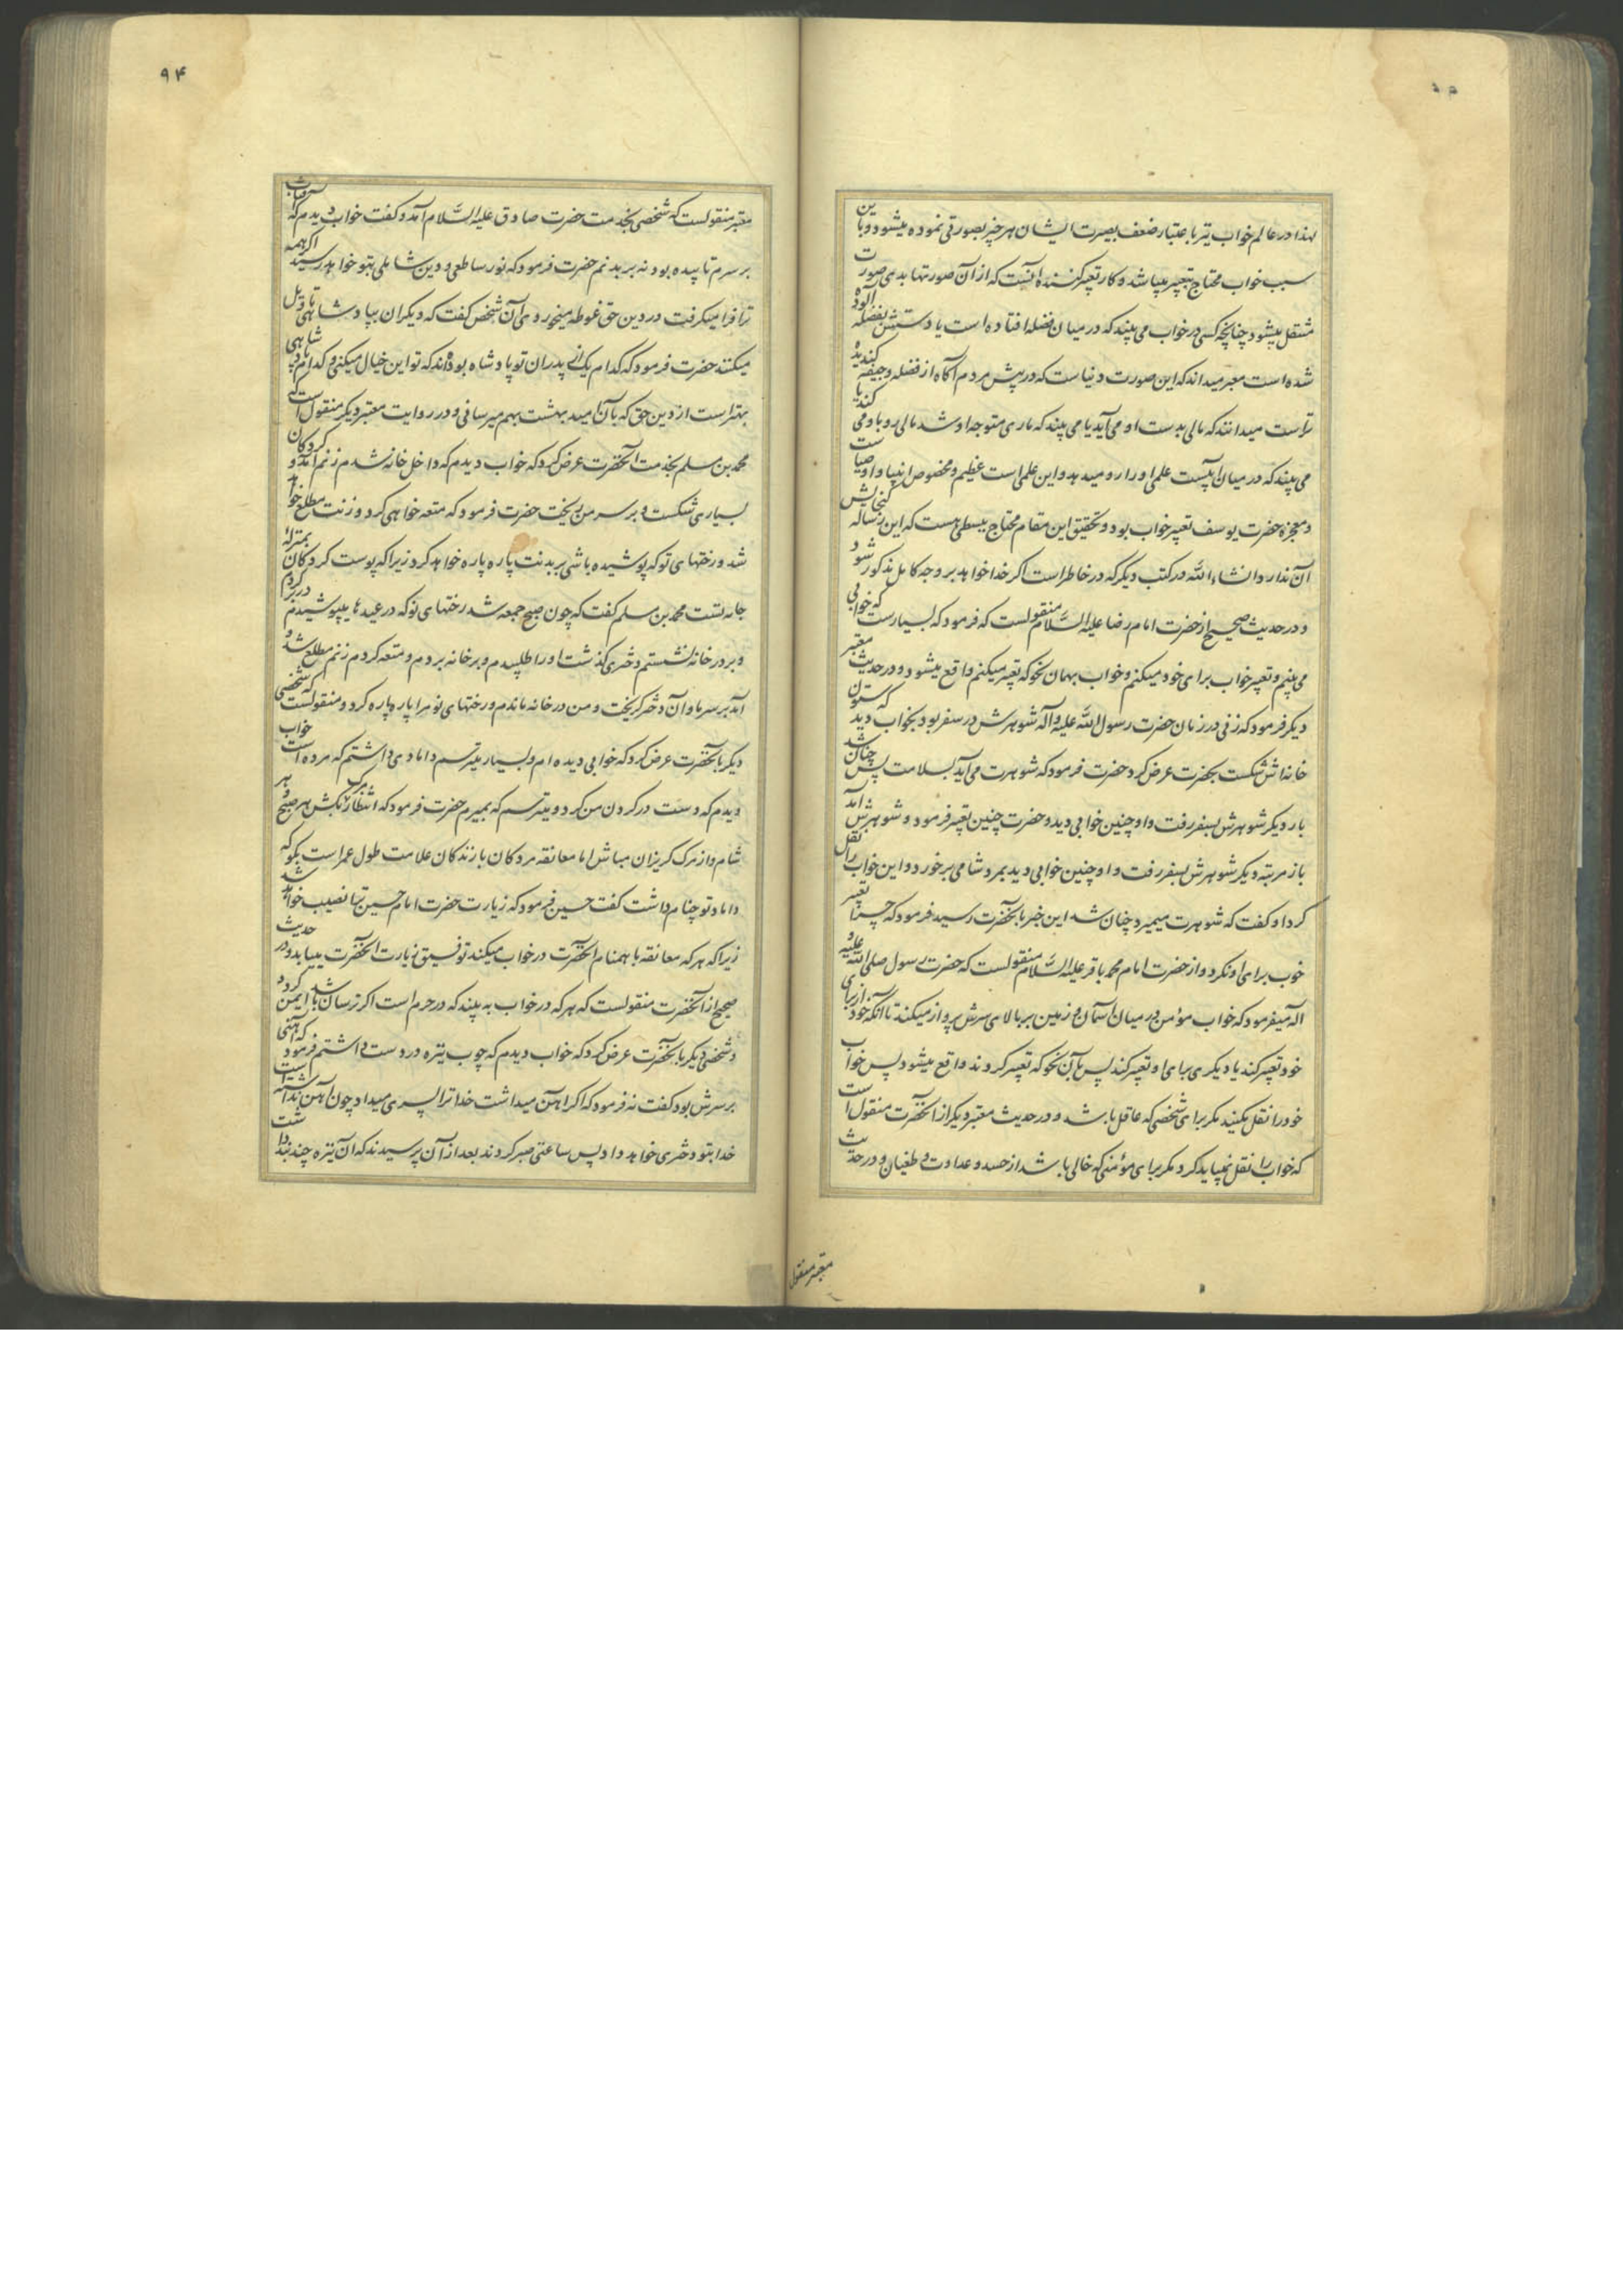 لهذا در عالم خواب نیز باعتبار ضعف بصیرت ایشان هر چیز بصورتی نموده میشود و باین
سبب خواب محتاج بتعبیر میباشد و کار تعبیر کننده آنست که از آن صورتها بدی صورت
منتقل میشود چنانچه کسی در خواب می بیند که در میان فضله افتاده است یا دستش بفضله آلوده
شده است معبر میداند که این صورت دنیاست که در پیش مردم آگاه از فضله و جیفه گندیده
تر است میدانند که مالی بدست او می آید یا می بیند که ماری متوجه او شد مالی رو باو می کند یا
می بیند که در میان آبیست علمی او را رو میدهد و این علمی است عظیم و مخصوص انبیا و اوصیاست
و معجزه حضرت یوسف تعبیر خواب بود و تحقیق این مقام محتاج ببسطی هست که این رساله گنجایش
آن ندارد و انشاء الله در کتب دیگر که در خاطر است اگر خدا خواهد بر وجه کامل مذکور شود
و در حدیث صحیح از حضرت امام رضا علیه السّلام منقولست که فرمود که بسیارست که خوابی
می بینم و تعبیر خواب برای خود میکنم و خواب بهمان نحو که تعبیر میکنم واقع میشود و در حدیث معتبر
دیگر فرمود که زنی در زمان حضرت رسول الله علیه و آله شوهرش در سفر بود بخواب دید که ستون
خانه اش شکست بحضرت عرض کرد حضرت فرمود که شوهرت می آید بسلامت پس چنان شد
بار دیگر شوهرش بسفر رفت و او چنین خوابی دید و حضرت چنین تعبیر فرمود و شوهرش آمد
باز مرتبه دیگر شوهرش بسفر رفت و او چنین خوابی دید بمرد شامی برخورد و این خواب را نقل
کرد او گفت که شوهرت میمیرد چنان شد این خبر بآنحضرت رسید فرمود که چرا تعبیر
خوب برای او نکرد و از حضرت امام محمد باقر علیه السّلام منقولست که حضرت رسول صلی الله علیه و
آله میفرمود که خواب مؤمن در میان آسمان و زمین بر بالای سرش پرواز میکند تا آنکه خود از برای
خود تعبیر کند یا دیگری برای او تعبیر کند پس بآن نحو که تعبیر کردند واقع میشود پس خواب
خود را نقل مکنید مگر برای شخصی که عاقل باشد و در حدیث معتبر دیگر از آنحضرت منقول است
که خواب را نقل نمیباید کرد مگر برای مؤمنی که خالی باشد از حسد و عداوت و طغیان و در حدیث
معتبر منقول
۹۴
معتبر منقولست که شخصی بخدمت حضرت صادق علیه السّلام آمد و گفت خواب دیدم که آفتاب
بر سرم تابیده بود نه بر بدنم حضرت فرمود که نور ساطعی و دین شاملی بتو خواهد رسید اگر همه
ترا فرا میگرفت در دین حق غوطه میخوردی آن شخص گفت که دیگران بپادشاهی تاویل
میکنند حضرت فرمود که کدام یک از پدران تو پادشاه بوده‌اند که تو این خیال میکنی و کدام پادشاهی
بهتر است از دین حق که بآن امید بهشت بهم میرسانی و در روایت معتبر دیگر منقول است که
محمد بن مسلم بخدمت آنحضرت عرض کرد که خواب دیدم که داخل خانه شدم زنم آمد و گردکان
بسیاری شکست و بر سر من ریخت حضرت فرمود که متعه خواهی کرد و زنت مطلع خواهد
شد و رختهای نو که پوشیده باشی بر بدنت پاره پاره خواهد کرد زیرا که پوست گردکان بمنزله
جامه تست محمد بن مسلم گفت که چون صبح جمعه شد رختهای نو که در عیدها میپوشیدم در بر کردم
و بر در خانه نشستم دختری گذشت او را طلبیدم و بر خانه بردم و متعه کردم زنم مطلع شد و
آمد بر سر ما و آن دختر گریخت و من در خانه ماندم و رختهای نو مرا پاره پاره کرد و منقولست که شخصی
دیگر بآنحضرت عرض کرد که خوابی دیده ام و بسیار میترسم دامادی داشتم که مرده است خواب
دیدم که دست در گردن من کرد و میترسم که بمیرم حضرت فرمود که انتظار مرگ بکش هر صبح و هر
شام و از مرگ گریزان مباش اما معانقه مردگان با زندگان علامت طول عمر است بگو که
داماد تو چه نام داشت گفت حسین فرمود که زیارت حضرت امام حسین ترا نصیب خواهد شد
زیرا که هر که معانقه با همنام آنحضرت در خواب میکند توفیق زیارت آنحضرت مییابد و در حدیث
صحیح از آنحضرت منقولست که هر که در خواب به بیند که در حرم است اگر ترسان باشد ایمن گردد
و شخصی دیگر بآنحضرت عرض کرد که خواب دیدم که چوب نیزه در دست داشتم فرمود که آهنی
بر سرش بود گفت نه فرمود که اگر آهن میداشت خدا ترا پسری میداد چون آهن نداشته است
خدا بتو دختری خواهد داد پس ساعتی صبر کردند بعد از آن پرسیدند که آن نیزه چند بند داشت